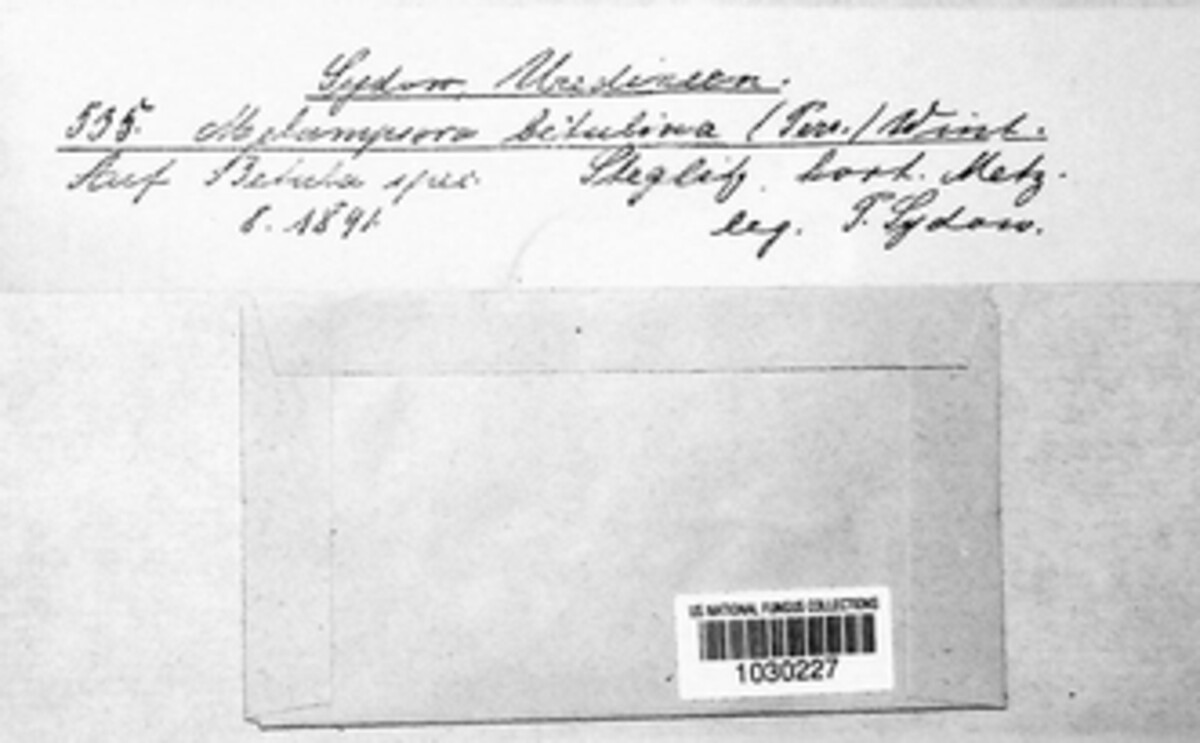 Sydow, Uredineen.
535. Melampsora betulina (Pers.) Wint.
Auf Betula spec. Steglitz, hort. Metz.
8. 1891. leg. P. Sydow.
US NATIONAL FUNGUS COLLECTIONS
1030227